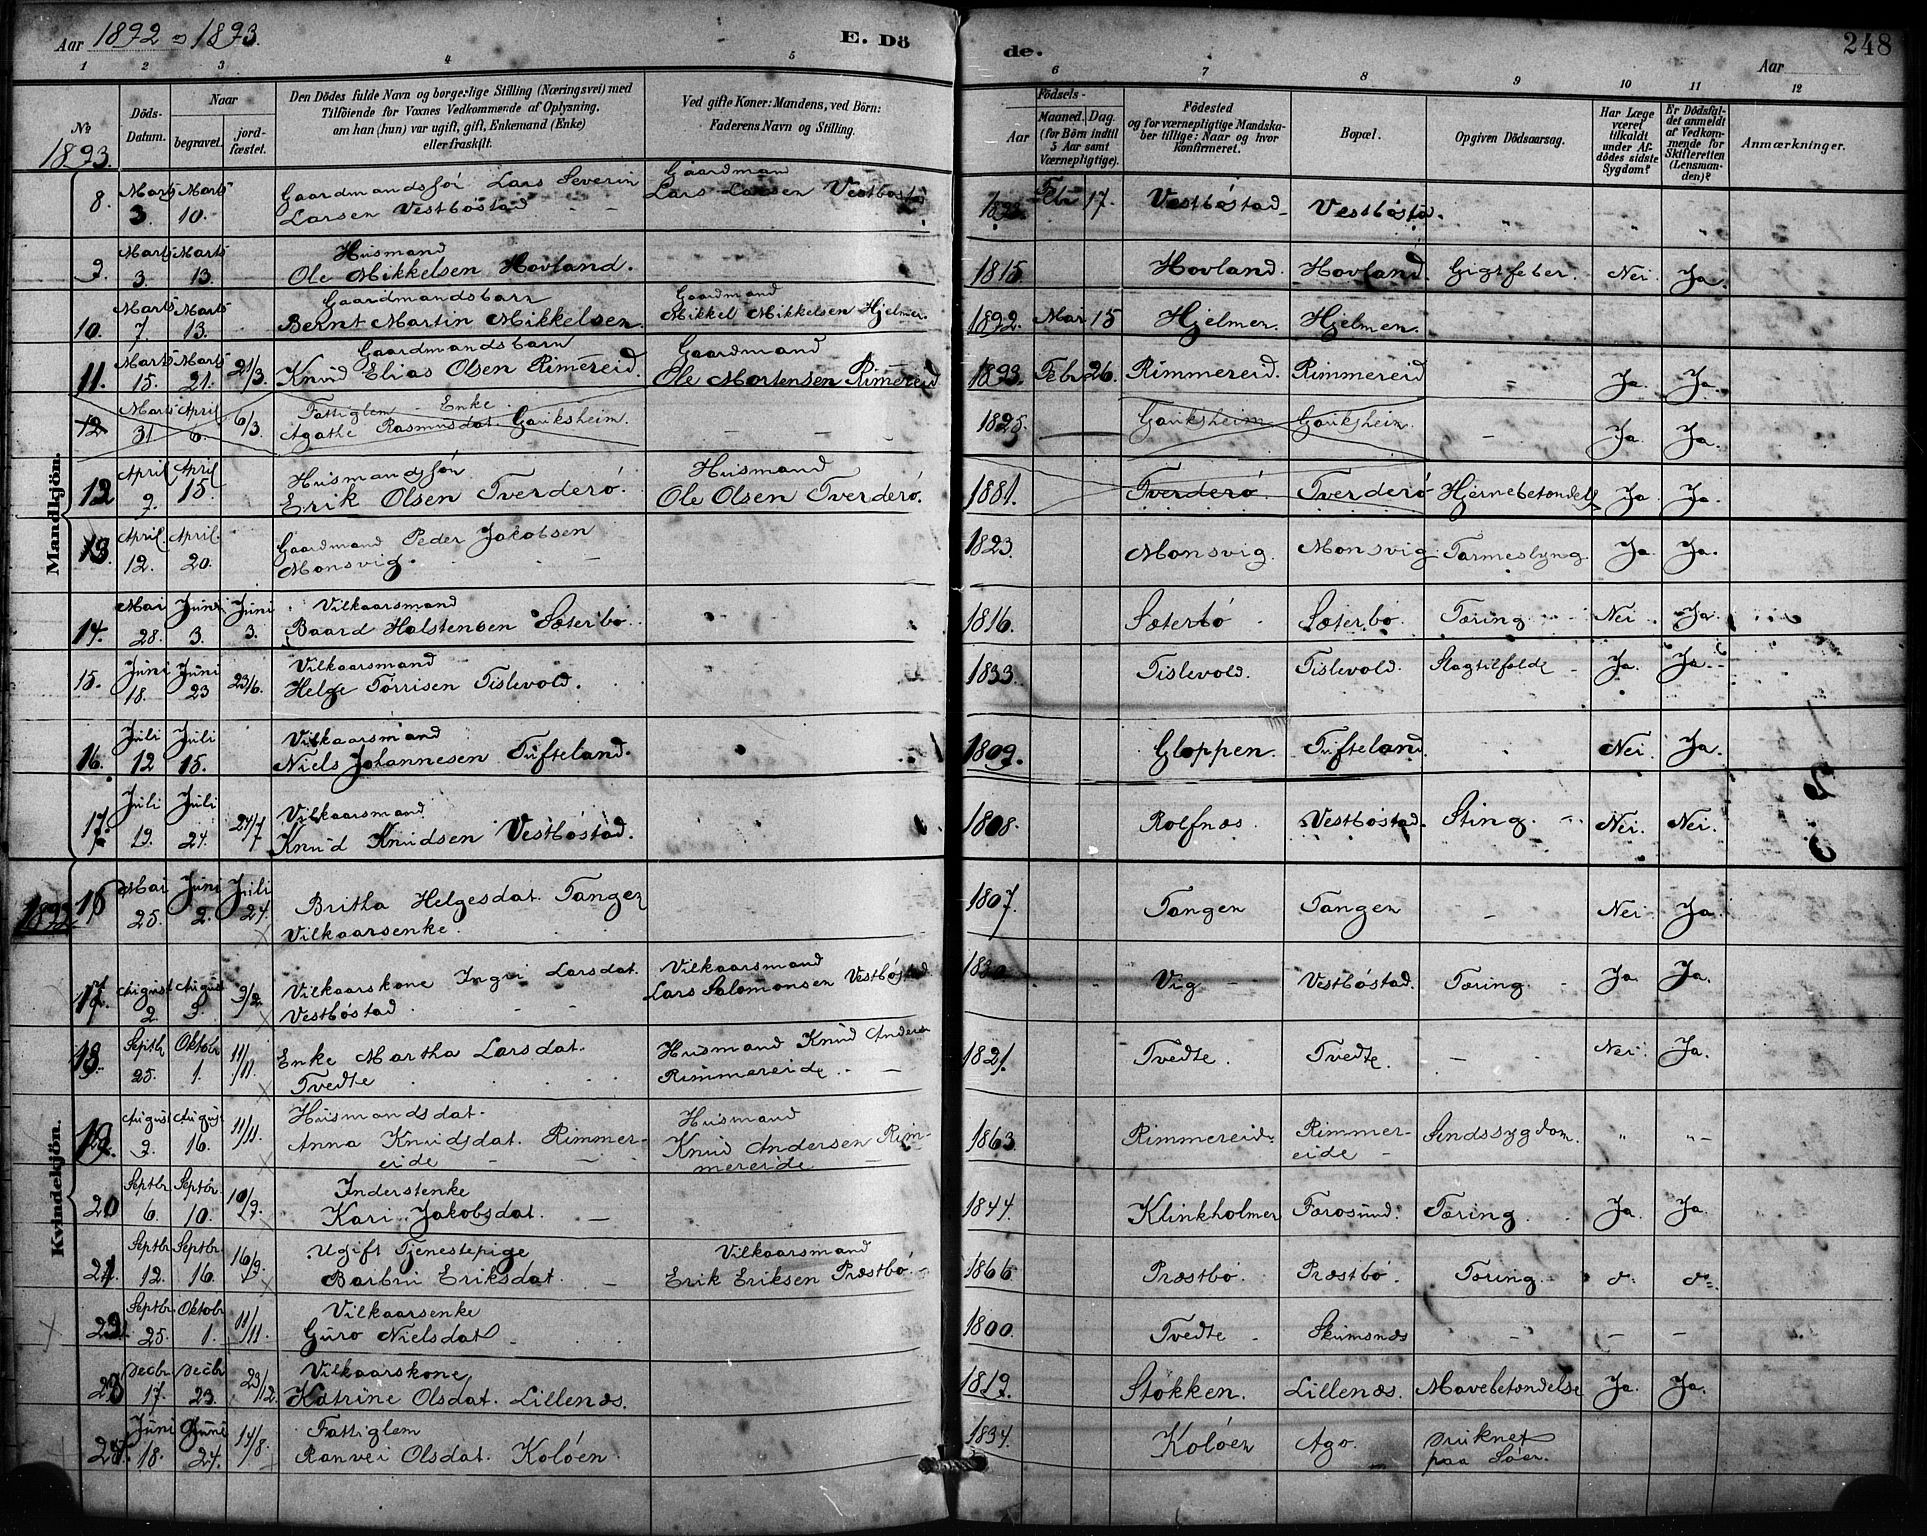 Aar 1892 - 1893.
E. Dö
de.
Aar
248
1 2 3 4 5 6 7 8 9 10 11 12
No
Döds-
Datum.
Naar
begravet.
jord-
fæstet.
Den Dödes fulde Navn og borgerlige Stilling (Næringsvei) med
Tilföiende for Voxnes Vedkommende af Oplysning,
om han (hun) var ugift, gift, Enkemand (Enke)
eller fraskilt.
Ved gifte Koner: Mandens, ved Börn:
Faderens Navn og Stilling.
Födsels-
Aar
Maaned. Dag.
(for Börn indtil
5 Aar samt
Værnepligtige).
Födested
og for værnepligtige Mandska-
ber tillige: Naar og hvor
konfirmeret.
Bopæl.
Opgiven Dödsaarsag.
Har Læge
været
tilkaldt
under Af-
dödes sidste
Sygdom?
Er Dödsfal-
det anmeldt
af Vedkom-
mende for
Skifteretten
(Lensman-
den)?
Anmærkninger.
1893.
Mandkjön.
8. Marts 3. Marts 10. Gaardmandssön Lars Severin Gaardman
Larsen Vestböstad Lars Larsen Vestbostad 1893 Febr 17. Vestböstad Vestböstad.
9. Marts 3. Marts 13. Husmand
Ole Mikkelsen Hovland. 1815. Hovland. Hovland. Gigtfeber. Nei. Ja.
10. Marts 7. Marts 13. Gaardmandsbarn Gaardmand
Bernt Martin Mikkelsen. Mikkel Mikkelsen Hjelmer. 1892. Mar 15 Hjelmer. Hjelmen.
11. Marts 15. Marts 21. 21/3. Gaardmandsbarn Gaardmand
Knud Elias Olsen Rimereid. Ole Mortensen Rimereid 1893. Febr 26. Rimmereid. Rimmereid = Ja. Ja.
12 Marts 31 April 6. 6/3. Fattiglem - Enke.
Agathe Rasmusdat. Gauksheim. 1825. Gauksheim Gauksheim. - Ja. Ja.
12 April 9. April 15. Husmandssön Husmand
Erik Olsen Tverderö. Ole Olsen Tverderö. 1881. Tverderö. Tverderö Hjernebetændels Ja Ja.
13. April 12. April 20. Gaardmand Peder Jakobsen
Monsvig. 1823. Monsvig. Monsvig. Tarmeslyng Ja. Ja.
14. Mai 28. Juni 3. Juni 3. Vilkaarsmand
Baard Halstensen Sæterbö. 1816. Sæterbö Sæterbö. Tæring Nei. Ja.
15. Juni 18. Juni 23 23/6. Vilkaarsmand
Helge Torrisen Tislevold. 1833. Tislevold. Tislevold. Slagtilfælde Ja. Ja.
16. Juli 12 Juli 15. Vilkaarsmand
Niels Johannesen Tufteland. 1809. Gloppen. Tufteland. Nei. Ja.
17. Juli 19. Juli 24. 24/7 Vilkaarsmand
Knud Knudsen Vestböstad. 1808. Rolfnæs Vestböstad. Sting. Nei. Nei.
1892.
Kvindekjön.
16 Mai 25. Juni 2. Juli 24. Britha Helgesdat. Tangen
Vilkaarsenke. 1807. Tangen Tangen - Nei. Ja.
17. August 2. August 9. 9/2. Vilkaarskone Ingri Larsdat. Vilkaarsmand
Vestböstad. Lars Salomonsen Vestböstad 1830 Vig Vestböstad. Tæring. Ja. Ja.
18. Septbr 25. Oktobr 1. 11/11. Enke Martha Larsdat. Husmand Knud Anders
Tvedte Rimmereide. 1821. Tvedte. Tvedte. - Nei. Ja.
19. August 9. August 16. 11/11. Husmandsdat. Husmand
Anna Knudsdat. Rimmer- Knud Andersen Rim-
eide mereide 1863. Rimmereide Rimmer-
eide Sindssygdom. " "
20 Septbr. 6. Septbr. 10. 10/9. Inderstenke
Kari Jakobsdat. 1844. Klinkholmen Færosund. Tæring. Ja Ja.
21. Septbr. 12. Septbr. 16. 16/9. Ugift Tjenestepige Vilkaarsmand
Barbru Eriksdat. Erik Eriksen Præstbö 1866 Præstbö. Præstbö. Tæring.
22. Septbr. 25. Oktobr. 1. 11/11. Vilkaarsenke
Guro Nielsdat 1800. Tvedte Skumsnæs - - -
23 Decbr. 17. Decbr 23. 23/12. Vilkaarskone
Katrine Olsdat. Lillenæs. 1819. Stökken. Lillenæs. Mavebetændelse Ja. Ja.
24. Juni 18. Juni 24. 14/8. Fattiglem
Ranvei Olsdat. Kolöen 1834. Kolöen Ago. Druknet
paa Söen.